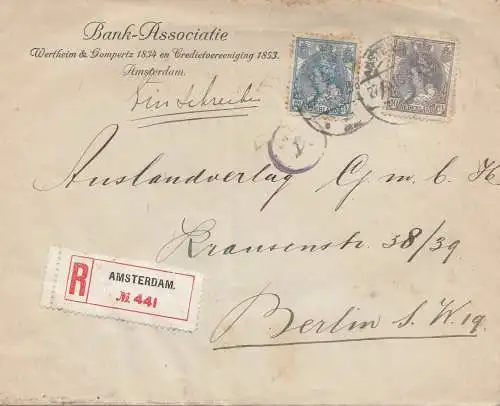 Bank-Associatie
Wertheim & Gompertz 1834 en Credietvereeniging 1853.
Amsterdam.
Einschreiben
Auslandverlag G. m. b. H
Krausenstr. 38/39
R
AMSTERDAM.
№. 441
Berlin S. W. 19.